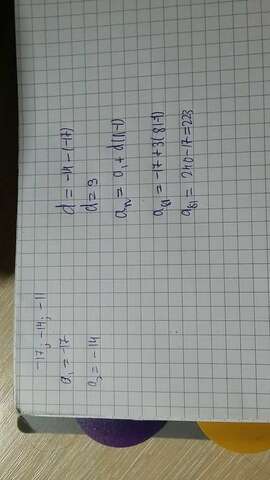 -17; -14; -11
a₁ = -17
a₂ = -14
d = -14 - (-17)
d = 3
aₙ = a₁ + d(n-1)
a₈₁ = -17 + 3(81-1)
a₈₁ = 240 - 17 = 223